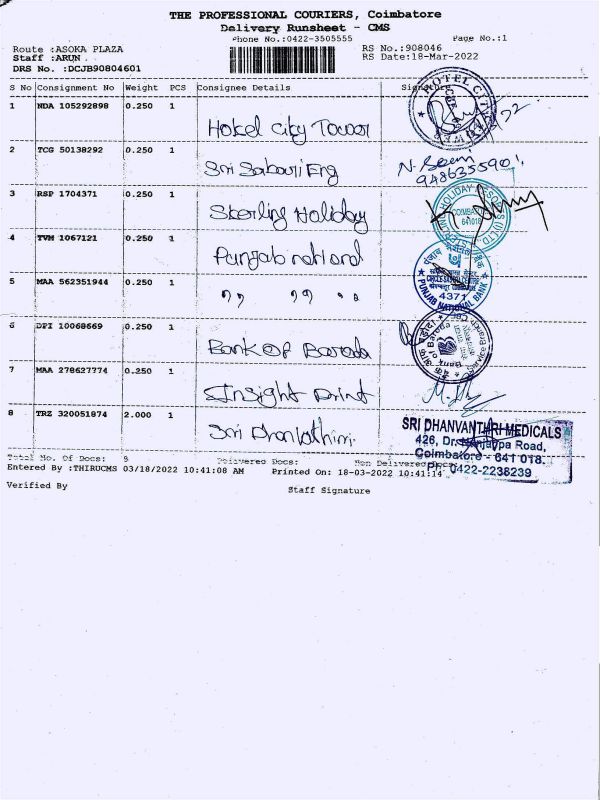 THE PROFESSIONAL COURIERS, Coimbatore
Delivery Runsheet - CMS
Phone No.:0422-3505555 Page No.:1
Route :ASOKA PLAZA RS No.:908046
Staff :ARUN RS Date:18-Mar-2022
DRS No. :DCJB90804601
S No Consignment No Weight PCS Consignee Details Signature
1 NDA 105292898 0.250 1
Hotel City Tower
2 TCG 50138292 0.250 1
Sri Sabari Eng
9486355901
3 RSP 1704371 0.250 1
Sterling Holiday
COIMBATORE
641018
4 TVM 1067121 0.250 1
Punjab national
5 MAA 562351944 0.250 1
" " "
4371
PUNJAB NATIONAL BANK
6 DPI 10068669 0.250 1
Bank of Baroda
Bank of Baroda
7 MAA 278627774 0.250 1
Insight Print
8 TRZ 320051874 2.000 1
SRI DHANVANTHRI MEDICALS
426, Dr. Nanjappa Road,
Coimbatore - 641 018.
ph: 0422-2238239
Total No. Of Docs: 8 Delivered Docs: Non Delivered Docs:
Entered By :THIRUCMS 03/18/2022 10:41:08 AM Printed On: 18-03-2022 10:41:14
Verified By Staff Signature